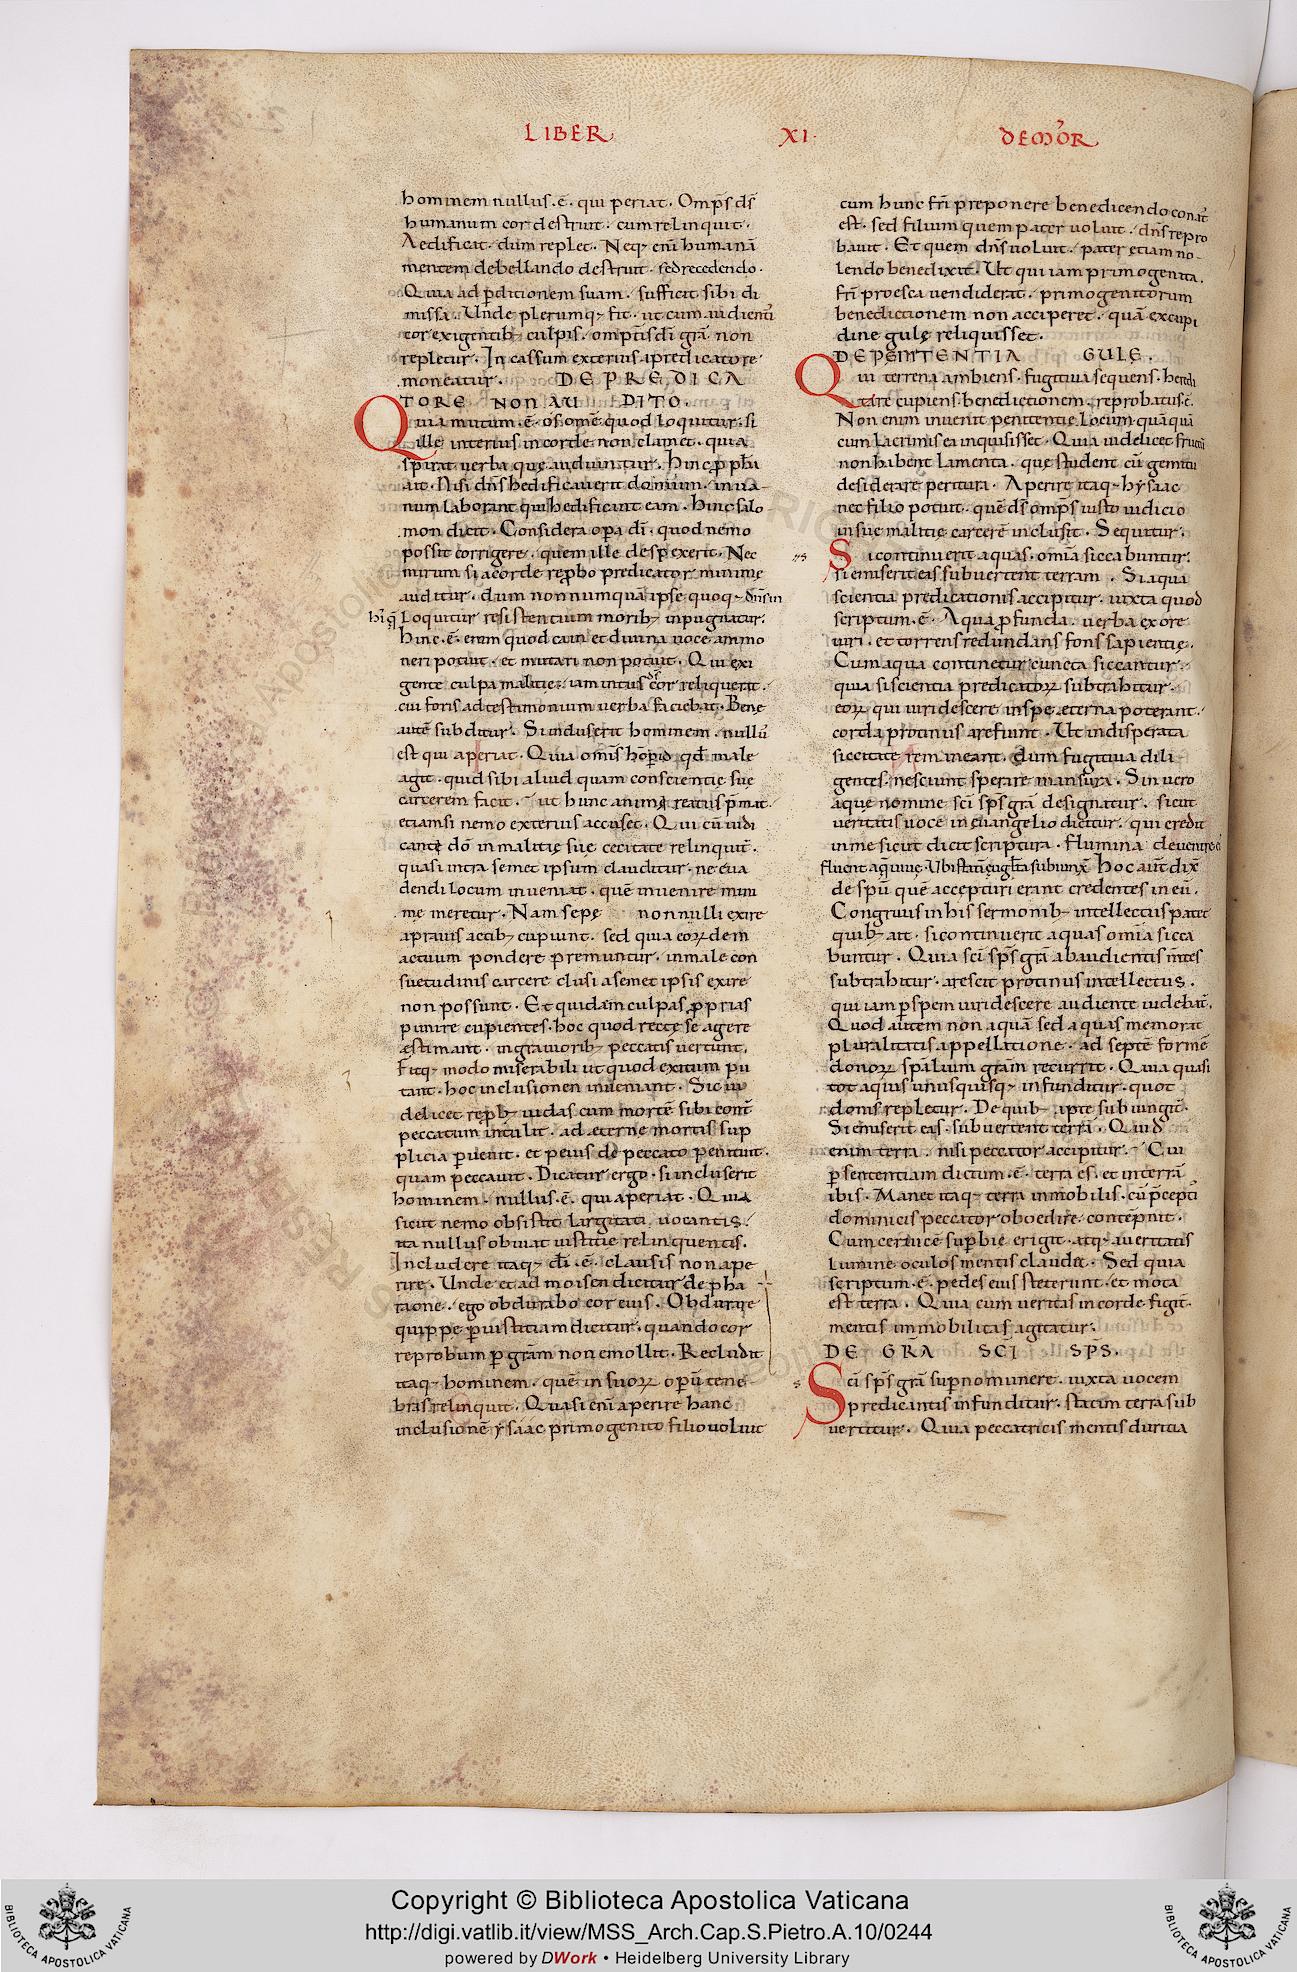 LIBER XI DE MOR
hominem nullus·ē· qui periat. Omp̄s ds̄
humanum cor destruit· cum relinquit·
Aedificat· dum replet· Neq; eni humanā
mentem debellando destruit· sed recedendo·
Quia ad pditionem suam· sufficit sibi di
missa· Unde plerumq; fit· ut cum audientū
cor exigentib; culpis· omptis di grā non
repletur· In cassum exterius predicatore
moneatur. DE PREDICA
TORE NON AUDITO.
Quia mutum·ē· os omē quod loquitur· si
ille interius in corde non clamet· qui a
spirat uerba que audiuntur. Hinc ppha
ait· Nisi dns hedificauerit domum· in ua
num laborant qui hedificant eam· Hinc salo
mon dicit· Considera opa di· quod nemo
possit corrigere· quem ille despexerit· Nec
mirum si a corde repbo predicator minime
auditur· dum non numquā ipse quoq; dns in
his que loquitur resistentium morib; inpugnatur·
Hinc·ē· enim quod cain et diuina uoce ammo
neri potuit· et mutari non potuit· Qui exi
gente culpa malitie· iam intus ds cor reliquerat·
cui foris ad testimonium uerba faciebat· Bene
autē subditur· Si incluserit hominem· nullus
est qui aperiat· Quia omis homo p id qd male
agit· quid sibi aliud quam conscientie sue
carcerem facit· ut hunc anime reatus pmat·
etiam si nemo exterius accuset· Qui cū iudi
cante dō in malitie sue cecitate relinquit̄·
quasi intra semet ipsum clauditur· ne eua
dendi locum inueniat· quē inuenire mini
me meretur· Nam sepe nonnulli exire
a prauis actib; cupiunt· sed quia eorum dem
actuum pondere premuntur· in male con
suetudinis carcere clusi a semet ipsis exire
non possunt· Et quidam culpas pprias
punire cupientes· hoc quod recte se agere
estimant· in grauiorib; peccatis uertunt·
Fitq; modo miserabili ut quod exitum pu
tant· hoc inclusionem inueniant· Sic ui
delicet repb; iudas cum mortē sibi cont̄
peccatum intulit· ad eterne mortis sup
plicia puenit· et peius de peccato penituit·
quam peccauit· Dicatur ergo· si incluserit
hominem· nullus·ē· qui aperiat· Quia
sicut nemo obsistit largitati uocantis·
ita nullus obuiat iustitie relinquentis·
Includere itaq; di·ē· clausis non ape
rire· Unde et ad moisen dicitur de pha
raone· ego obdurabo cor eius· Obdurare
quippe p iustitiam dicitur· quando cor
reprobum p gram non emollit· Recludit
itaq; hominem· quē in suorum operū tene
bris relinquit· Quasi eni aperire hanc
inclusionē ysaac primogenito filio uoluit
cum hunc fri preponere benedicendo conat̄
est· sed filium quem pater uoluit· dns repro
bauit· Et quem dns uoluit· pater etiam no
lendo benedixit· Ut qui iam primogenita
fri pro esca uendiderat· primogenitorum
benedictionem non acciperet· quā ex cupi
dine gule reliquisset·
DE PENITENTIA GULE·
Qui terrena ambiens· fugitiua sequens· heredi
tare cupiens benedictionem· reprobatus·ē·
Non enim inuenit penitentie locum quāquā
cum lacrimis ea inquisisset· Quia uidelicet fructū
non habent lamenta· que student cū gemitu
desiderare peritura· Aperire itaq; hysaac
nec filio potuit· quē ds omps iusto iudicio
in sue malitie carcerē inclusit· Sequitur·
Si continuerit aquas· omia siccabuntur·
si emiserit eas subuertent terram· Si aqua
scientia predicationis accipitur· iuxta quod
scriptum·ē· Aqua pfunda uerba ex ore
uiri· et torrens redundans fons sapientie·
Cum aqua continetur cuncta siccantur·
quia si scientia predicatorum subtrahitur·
eorum qui uiridescere in spe eterna poterant·
corda protinus arefiunt· Ut in disperata
siccitate remaneant· dum fugitiua dili
gentes· nesciunt sperare mansura· Sin uero
aque nomine sci sps gra designatur· sicut
ueritatis uoce in euangelio dicitur· qui credit
in me sicut dicit scriptura· flumina de uentre ei
fluent aq uiue· Ubi statī euglista subiunx Hoc aut̄ dix̄
de spū quē accepturi erant credentes in eū·
Congruus in his sermonib; intellectus patet
quib; ait· si continuerit aquas omia sicca
buntur· Quia sci sps gra ab audientis mtes
subtrahitur· arescit protinus intellectus·
qui iam p spem uiridescere audiente uidebat̄·
Quod autem non aquā sed aquas memorat
pluralitatis appellatione· ad septē formē
donorum spalium gram recurrit· Quia quasi
tot aquis unusquisq; infunditur· quot
donis repletur· De quib; apte subiungit̄·
Si emiserit eas· subuertent terrā· Quid
enim terra· nisi peccator accipitur· Cui
p sententiam dictum·ē· terra es· et in terrā
ibis· Manet itaq; terra inmobilis· cū pcepti
dominicis peccator oboedire contepnit·
Cum ceruicē supbie erigit· atq; a ueritatis
lumine oculos mentis claudit· Sed quia
scriptum·ē· pedes eius steterunt· et mota
est terra· Quia cum ueritas in corde figit̄·
mentis immobilitas agitatur·
DE GRA SCI SPS·
Sci sps gra superno munere· iuxta uocem
predicantis infunditur· statim terra sub
uertitur· Quia peccatricis mentis duritia
Copyright © Biblioteca Apostolica Vaticana
http://digi.vatlib.it/view/MSS_Arch.Cap.S.Pietro.A.10/0244
powered by DWork • Heidelberg University Library
BIBLIOTECA APOSTOLICA VATICANA
BIBLIOTECA APOSTOLICA VATICANA